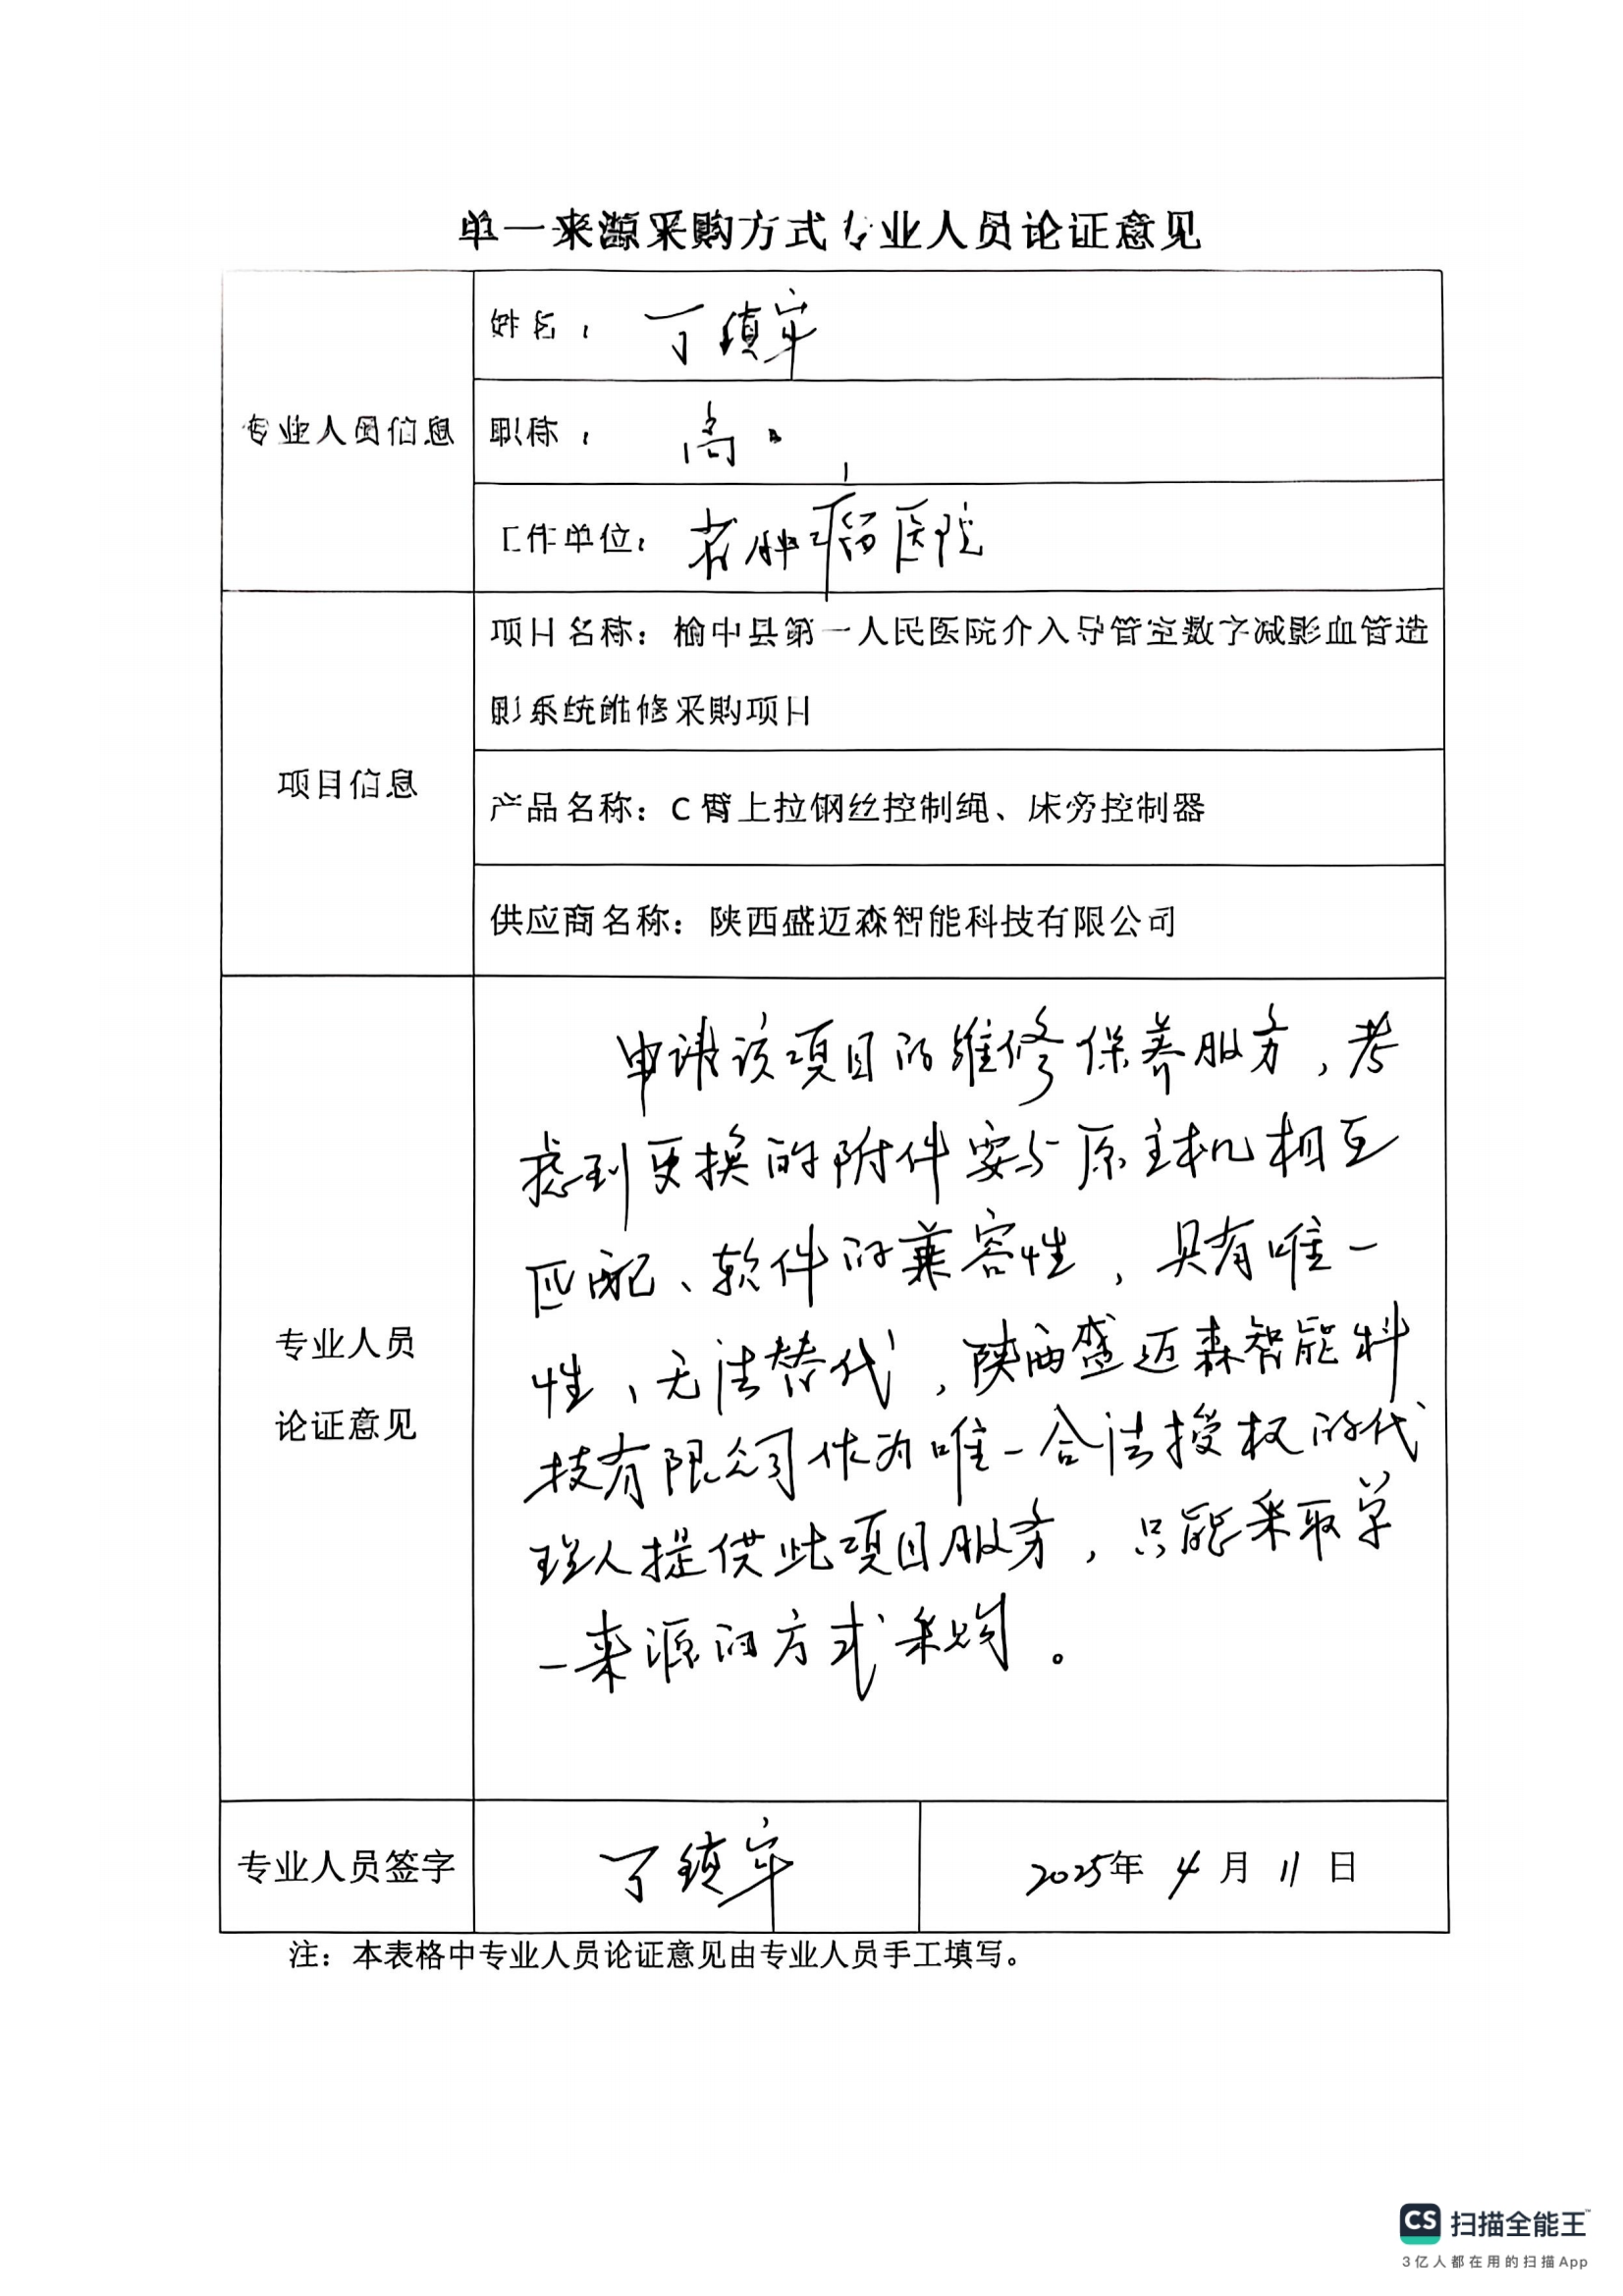 单一来源采购方式专业人员论证意见
专业人员信息
姓名：丁镇军
职称：高
工作单位：省肿瘤医院
项目信息
项目名称：榆中县第一人民医院介入导管室数字减影血管造
影系统维修采购项目
产品名称：C臂上拉钢丝控制绳、床旁控制器
供应商名称：陕西盛迈森智能科技有限公司
专业人员
论证意见
申请该项目的维修保养服务，考
虑到更换的附件要与原主机相互
匹配、软件的兼容性，具有唯一
性、无法替代，陕西盛迈森智能科
技有限公司作为唯一合法授权的代
理人提供此项目服务，只能采取单
一来源的方式采购。
专业人员签字
丁镇军
2025年 4 月 11 日
注：本表格中专业人员论证意见由专业人员手工填写。
CS 扫描全能王™
3亿人都在用的扫描App